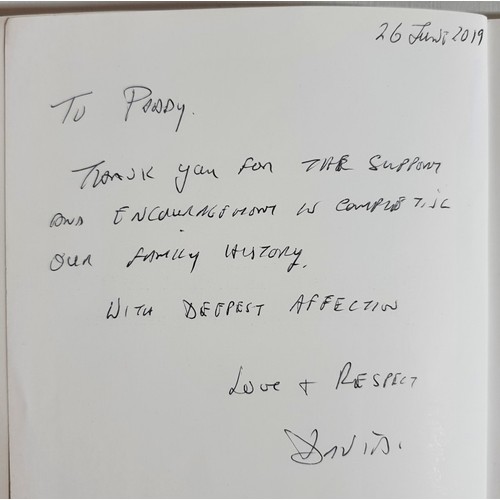 26 June 2019
To Paddy.
Thank you for the support
and encouragement in completing
our family history.
With deepest affection
Love + Respect
David.